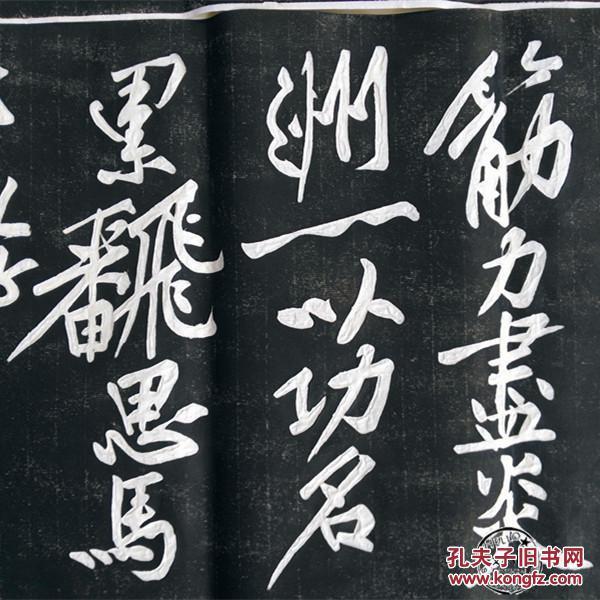 筋力盡炎
洲一以功名
累翻思馬
孔夫子旧书网
www.kongfz.com